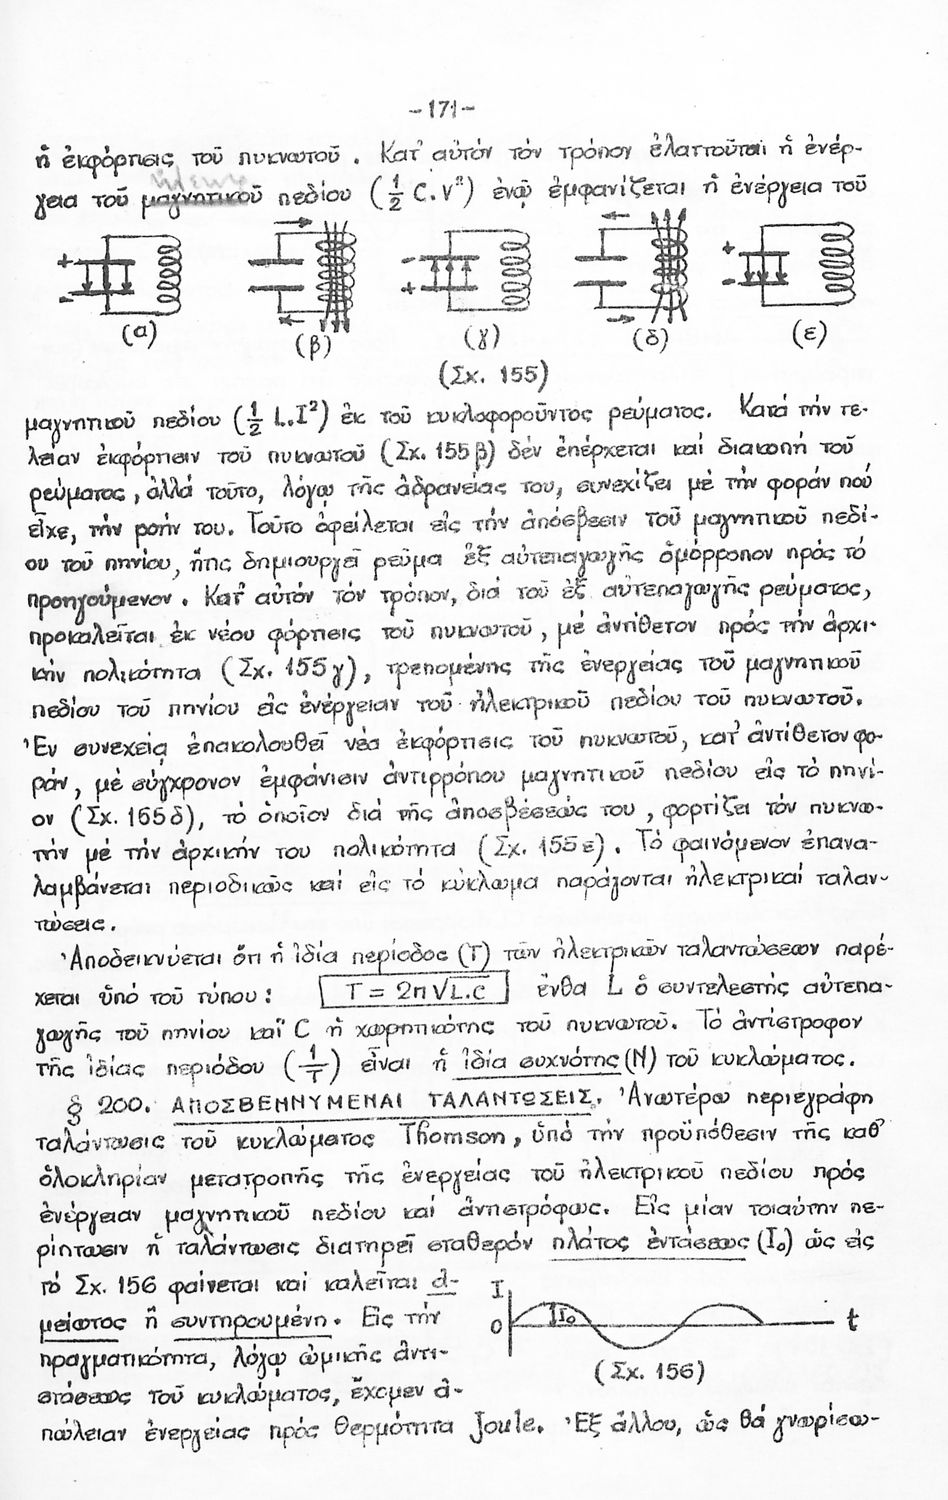 -171-
ἡ ἐκφόρτισις τοῦ πυκνωτοῦ. Κατ' αὐτόν τόν τρόπον ἐλαττοῦται ἡ ἐνέρ-
γεια τοῦ μαγνητικοῦ πεδίου (1/2 C.V²) ἐνῷ ἐμφανίζεται ἡ ἐνέργεια τοῦ
(α) (β) (γ) (δ) (ε)
(Σχ. 155)
μαγνητικοῦ πεδίου (1/2 L.I²) ἐκ τοῦ κυκλοφοροῦντος ρεύματος. Κατά τήν τε-
λείαν ἐκφόρτισιν τοῦ πυκνωτοῦ (Σχ. 155β) δέν ἐπέρχεται καί διακοπή τοῦ
ρεύματος, ἀλλά τοῦτο, λόγῳ τῆς ἀδρανείας του, συνεχίζει μέ τήν φοράν πού
εἶχε, τήν ροήν του. Τοῦτο ὀφείλεται εἰς τήν ἀπόσβεσιν τοῦ μαγνητικοῦ πεδί-
ου τοῦ πηνίου, ἥτις δημιουργεῖ ρεῦμα ἐξ αὐτεπαγωγῆς ὁμόρροπον πρός τό
προηγούμενον. Κατ' αὐτόν τόν τρόπον, διά τοῦ ἐξ αὐτεπαγωγῆς ρεύματος,
προκαλεῖται ἐκ νέου φόρτισις τοῦ πυκνωτοῦ, μέ ἀντίθετον πρός τήν ἀρχι-
κήν πολικότητα (Σχ. 155γ), τρεπομένης τῆς ἐνεργείας τοῦ μαγνητικοῦ
πεδίου τοῦ πηνίου εἰς ἐνέργειαν τοῦ ἠλεκτρικοῦ πεδίου τοῦ πυκνωτοῦ.
Ἐν συνεχείᾳ ἐπακολουθεῖ νέα ἐκφόρτισις τοῦ πυκνωτοῦ, κατ' ἀντίθετον φο-
ράν, μέ σύγχρονον ἐμφάνισιν ἀντιρρόπου μαγνητικοῦ πεδίου εἰς τό πηνί-
ον (Σχ. 155δ), τό ὁποῖον διά τῆς ἀποσβέσεώς του, φορτίζει τόν πυκνω-
τήν μέ τήν ἀρχικήν του πολικότητα (Σχ. 155ε). Τό φαινόμενον ἐπανα-
λαμβάνεται περιοδικῶς καί εἰς τό κύκλωμα παράγονται ἠλεκτρικαί ταλαν-
τώσεις.
Ἀποδεικνύεται ὅτι ἡ ἰδία περίοδος (Τ) τῶν ἠλεκτρικῶν ταλαντώσεων παρέ-
χεται ὑπό τοῦ τύπου: T = 2π√L.C ἔνθα L ὁ συντελεστής αὐτεπα-
γωγῆς τοῦ πηνίου καί C ἡ χωρητικότης τοῦ πυκνωτοῦ. Τό ἀντίστροφον
τῆς ἰδίας περιόδου (1/T) εἶναι ἡ ἰδία συχνότης (Ν) τοῦ κυκλώματος.
§ 200. ΑΠΟΣΒΕΝΝΥΜΕΝΑΙ ΤΑΛΑΝΤΩΣΕΙΣ. Ἀνωτέρω περιεγράφη
ταλάντωσις τοῦ κυκλώματος Thomson, ὑπό τήν προϋπόθεσιν τῆς καθ'
ὁλοκληρίαν μετατροπῆς τῆς ἐνεργείας τοῦ ἠλεκτρικοῦ πεδίου πρός
ἐνέργειαν μαγνητικοῦ πεδίου καί ἀντιστρόφως. Εἰς μίαν τοιαύτην πε-
ρίπτωσιν ἡ ταλάντωσις διατηρεῖ σταθερόν πλάτος ἐντάσεως (I₀) ὡς εἰς
τό Σχ. 156 φαίνεται καί καλεῖται ἀ-
μείωτος ἤ συντηρουμένη. Εἰς τήν
πραγματικότητα, λόγῳ ὠμικῆς ἀντι-
στάσεως τοῦ κυκλώματος, ἔχομεν ἀ-
I
I₀
0
t
(Σχ. 156)
πώλειαν ἐνεργείας πρός θερμότητα Joule. Ἐξ ἄλλου, ὡς θά γνωρίσω-